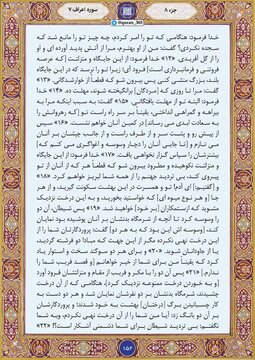 جزء ۸
@Quran_365
سوره اعراف ۷
خدا فرمود: هنگامی که تو را امر کردم، چه چیز تو را مانع شد که
سجده نکردی؟ گفت: من از او بهترم، مرا از آتش پدید آورده ای و او
را از گل آفریدی. «۱۲» خدا فرمود: از این جایگاه و منزلتت [که عرصه
فروتنی و فرمانبرداری است] فرود آی؛ زیرا تو را نرسد که در این جایگاه
بلند، بزرگ منشی کنی، پس بیرون شو که قطعاً از خوارشدگانی. «۱۳»
گفت: مرا تا روزی که [مردگان] برانگیخته شوند، مهلت ده. «۱۴» خدا
فرمود: البته تو از مهلت یافتگانی. «۱۵» گفت: به سبب اینکه مرا به
بیراهه و گمراهی انداختی، یقیناً بر سر راه راست تو [که رهروانش را
به سعادت ابدی می رساند] در کمین آنان خواهم نشست. «۱۶» سپس
از پیش رو و پشت سر و از طرف راست و از جانب چپشان بر آنان
می تازم و [تا جایی آنان را دچار وسوسه و اغواگری می کنم که]
بیشترشان را سپاس گزار نخواهی یافت. «۱۷» خدا فرمود: از این جایگاه
و منزلتت نکوهیده و مطرود بیرون شو که قطعاً هر که از آنان از تو
پیروی کند، بی تردید جهنم را از همه شما لبریز خواهم کرد. «۱۸»
و [گفتیم:] ای آدم! تو و همسرت در این بهشت سکونت گیرید، و از هر
جا [و هر نوع میوه ای] که خواستید بخورید، و به این درخت نزدیک
مشوید که از ستمکاران [بر خود] خواهید شد. «۱۹» پس شیطان، آن دو
را وسوسه کرد تا آنچه از شرمگاه بدنشان بر آنان پوشیده بود نمایان
کند، [وسوسه اش این بود که به هر دو] گفت: پروردگارتان شما را از
این درخت نهی نکرده مگر از این جهت که مبادا دو فرشته گردید،
یا از جاودانان شوید. «۲۰» و برای هر دو سوگند سخت و استوار یاد
کرد که یقیناً من برای شما از خیر خواهانم [و قصد فریب شما را
ندارم.] «۲۱» پس آن دو را با مکر و فریب از مقام و منزلتشان فرود آورد
[و به خوردن درخت ممنوعه نزدیک کرد]. هنگامی که از آن درخت
چشیدند، شرمگاه بدنشان بر دو نفرشان نمایان شد و هر دو دست به
کار چسبانیدن برگ [درختان] بهشت به خود شدند؛ و پروردگارشان
بر آن دو بانگ زد: آیا من شما را از آن درخت نهی نکردم، و به شما
نگفتم: بی تردید شیطان برای شما دشمنی آشکار است؟! «۲۲»
۱۵۲